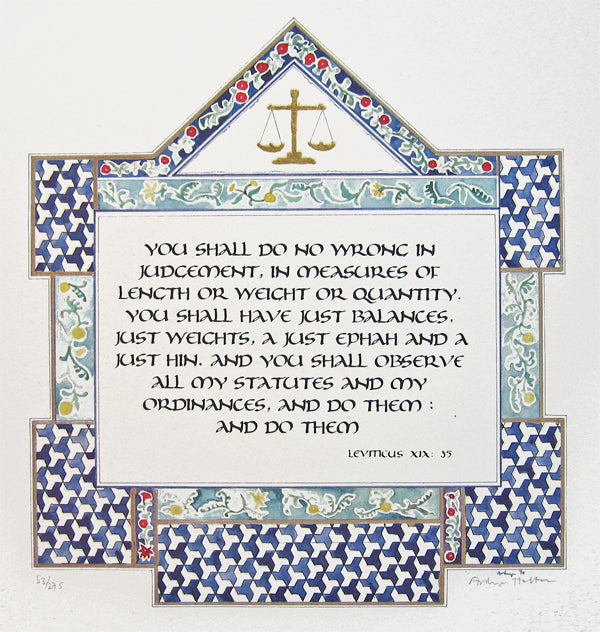 YOU SHALL DO NO WRONG IN
JUDGEMENT, IN MEASURES OF
LENGTH OR WEIGHT OR QUANTITY.
YOU SHALL HAVE JUST BALANCES,
JUST WEIGHTS, A JUST EPHAH AND A
JUST HIN. AND YOU SHALL OBSERVE
ALL MY STATUTES AND MY
ORDINANCES, AND DO THEM :
AND DO THEM
LEVITICUS XIX: 35
53/295